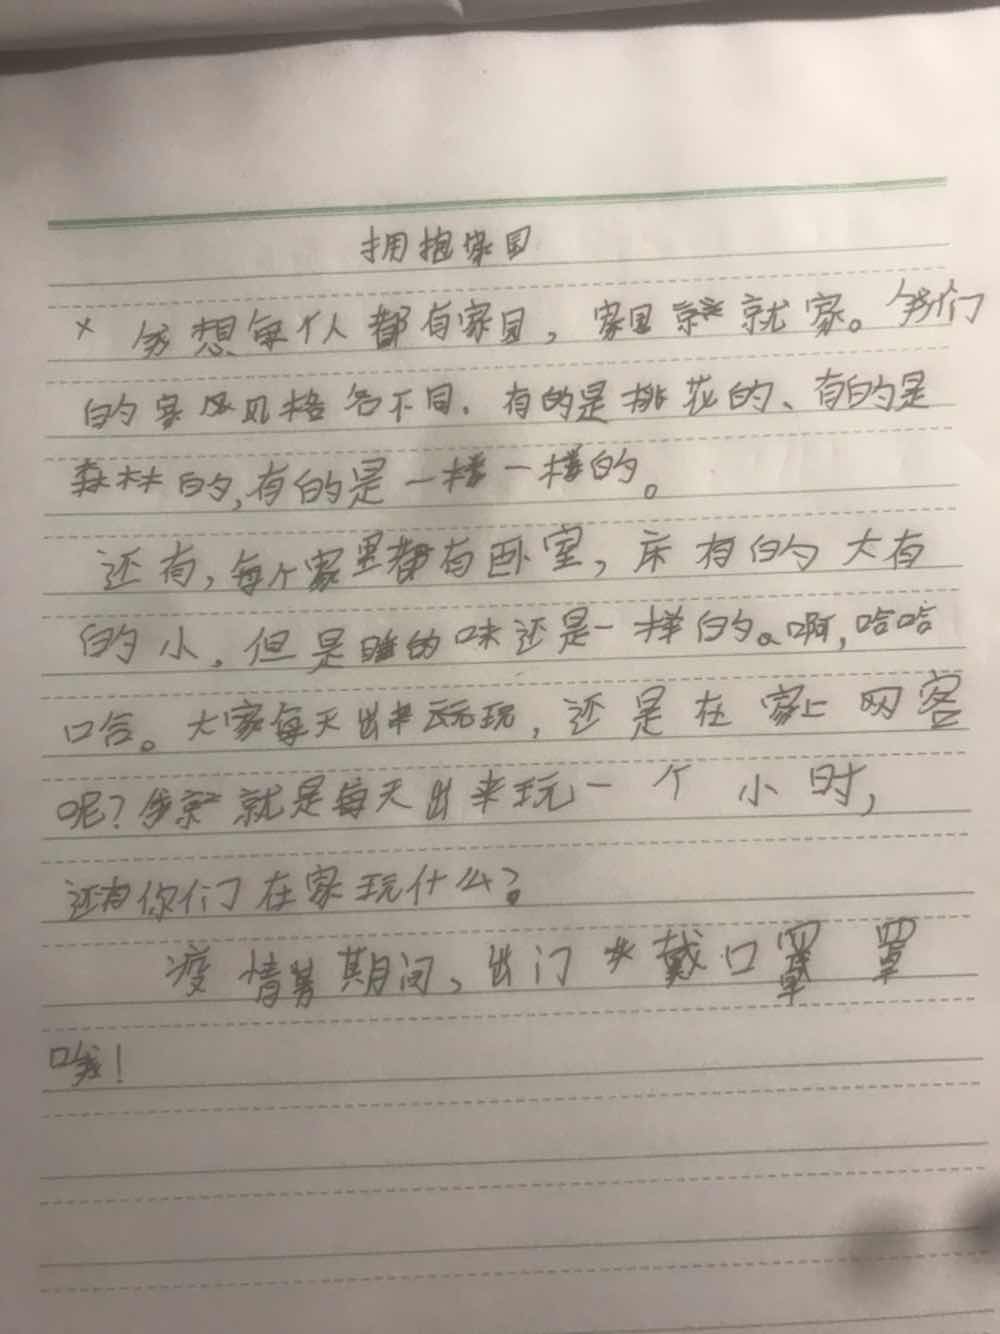 拥抱家园
我想每个人都有家园，家园就家。我们
的家风格各不同．有的是桃花的、有的是
森林的,有的是一样一样的。
还有,每个家里都有卧室,床有的大有
的小．但是睡的味还是一样的。啊,哈哈
哈。大家每天出来玩玩,还是在家上网客
呢?我就是每天出来玩一个小时,
还有你们在家玩什么?
疫情期间、出门戴口罩
哦!